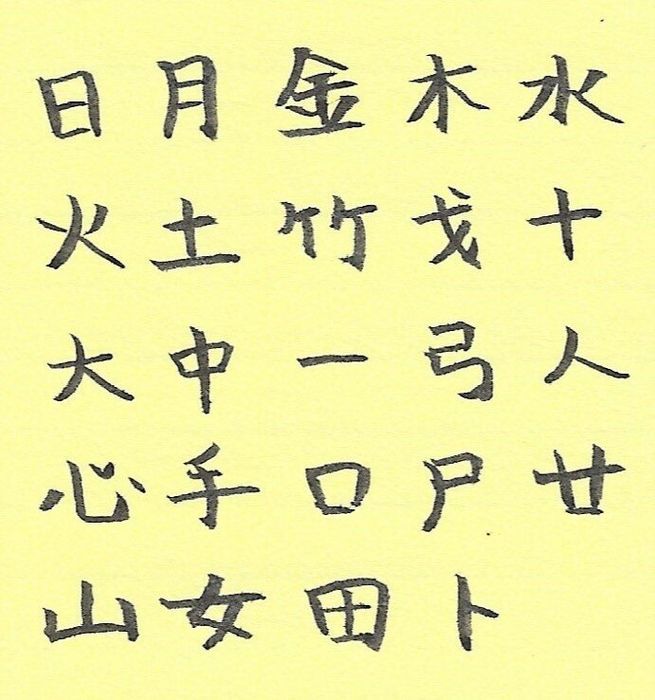 日月金木水
火土竹戈十
大中一弓人
心手口尸廿
山女田卜